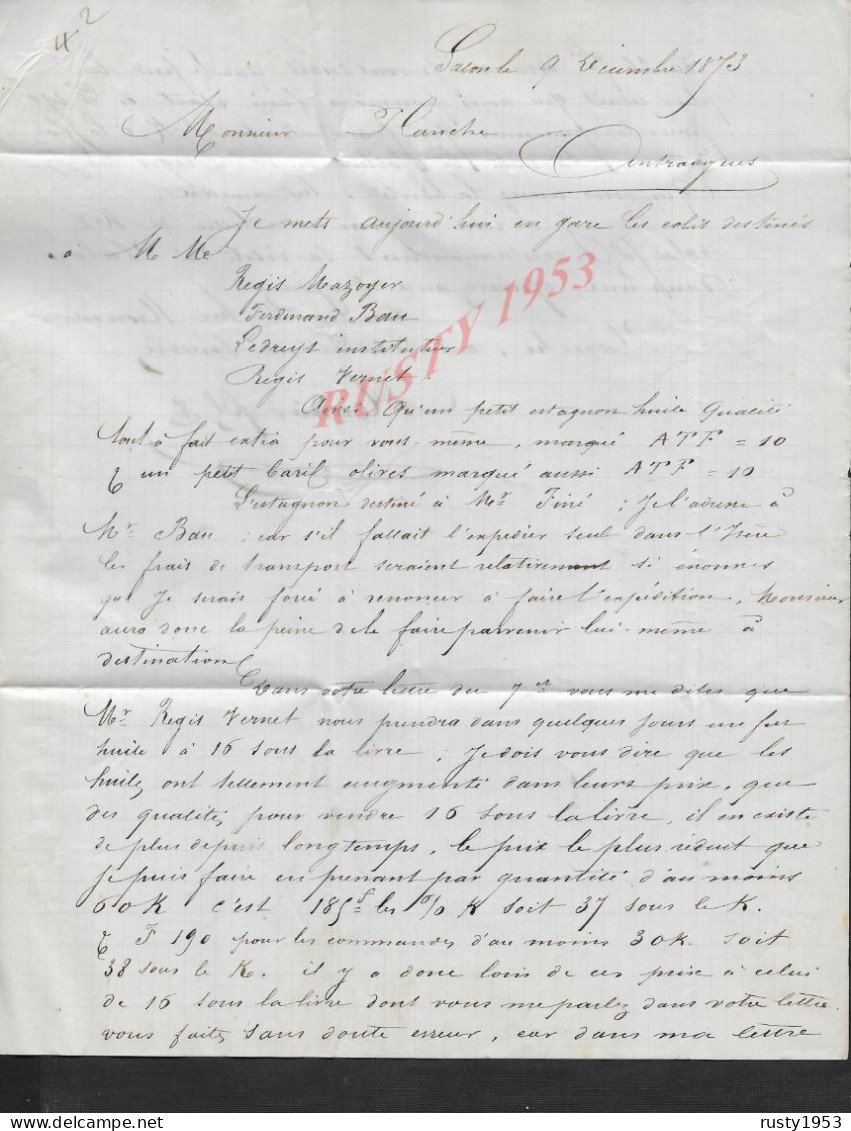 4 2
Salon le 9 Décembre 1873
Monsieur Planche
Antraigues
Je mets aujourd'hui en gare les colis destinés
à M Mrs
Regis Mazoyer
Ferdinand Bau
Ledreyt instituteur
Regis Vernet.
Ainsi qu'un petit estagnon huile qualité
tout à fait extra pour vous-même, marqué ATF = 10
& un petit baril olives marqué aussi ATF = 10
L'estagnon destiné à Mr Finé ; Je l'adresse à
Mr Bau ; car s'il fallait l'expédier seul dans l'Isère
les frais de transport seraient relativement si énormes
que Je serais forcé à renoncer à faire l'expédition, Monsieur
aura donc la peine de le faire parvenir lui-même à
destination
Dans votre lettre du 7 ct vous me dites que
Mr Regis Vernet nous prendra dans quelques Jours un fût
huile à 16 sous la livre ; Je dois vous dire que les
huiles ont tellement augmenté dans leurs prix, que
des qualités pour vendre 16 sous la livre, il en existe
de plus depuis longtemps, le prix le plus réduit que
Je puis faire en prenant par quantité d'au moins
60 K c'est 185f les % K soit 37 sous le K.
& F 190 pour les commandes d'au moins 30 K. soit
38 sous le K. il y a donc loin de ces prix à celui
de 16 sous la livre dont vous me parlez dans votre lettre
vous faites sans doute erreur, car dans ma lettre
RUSTY 1953
rusty1953
rusty1953